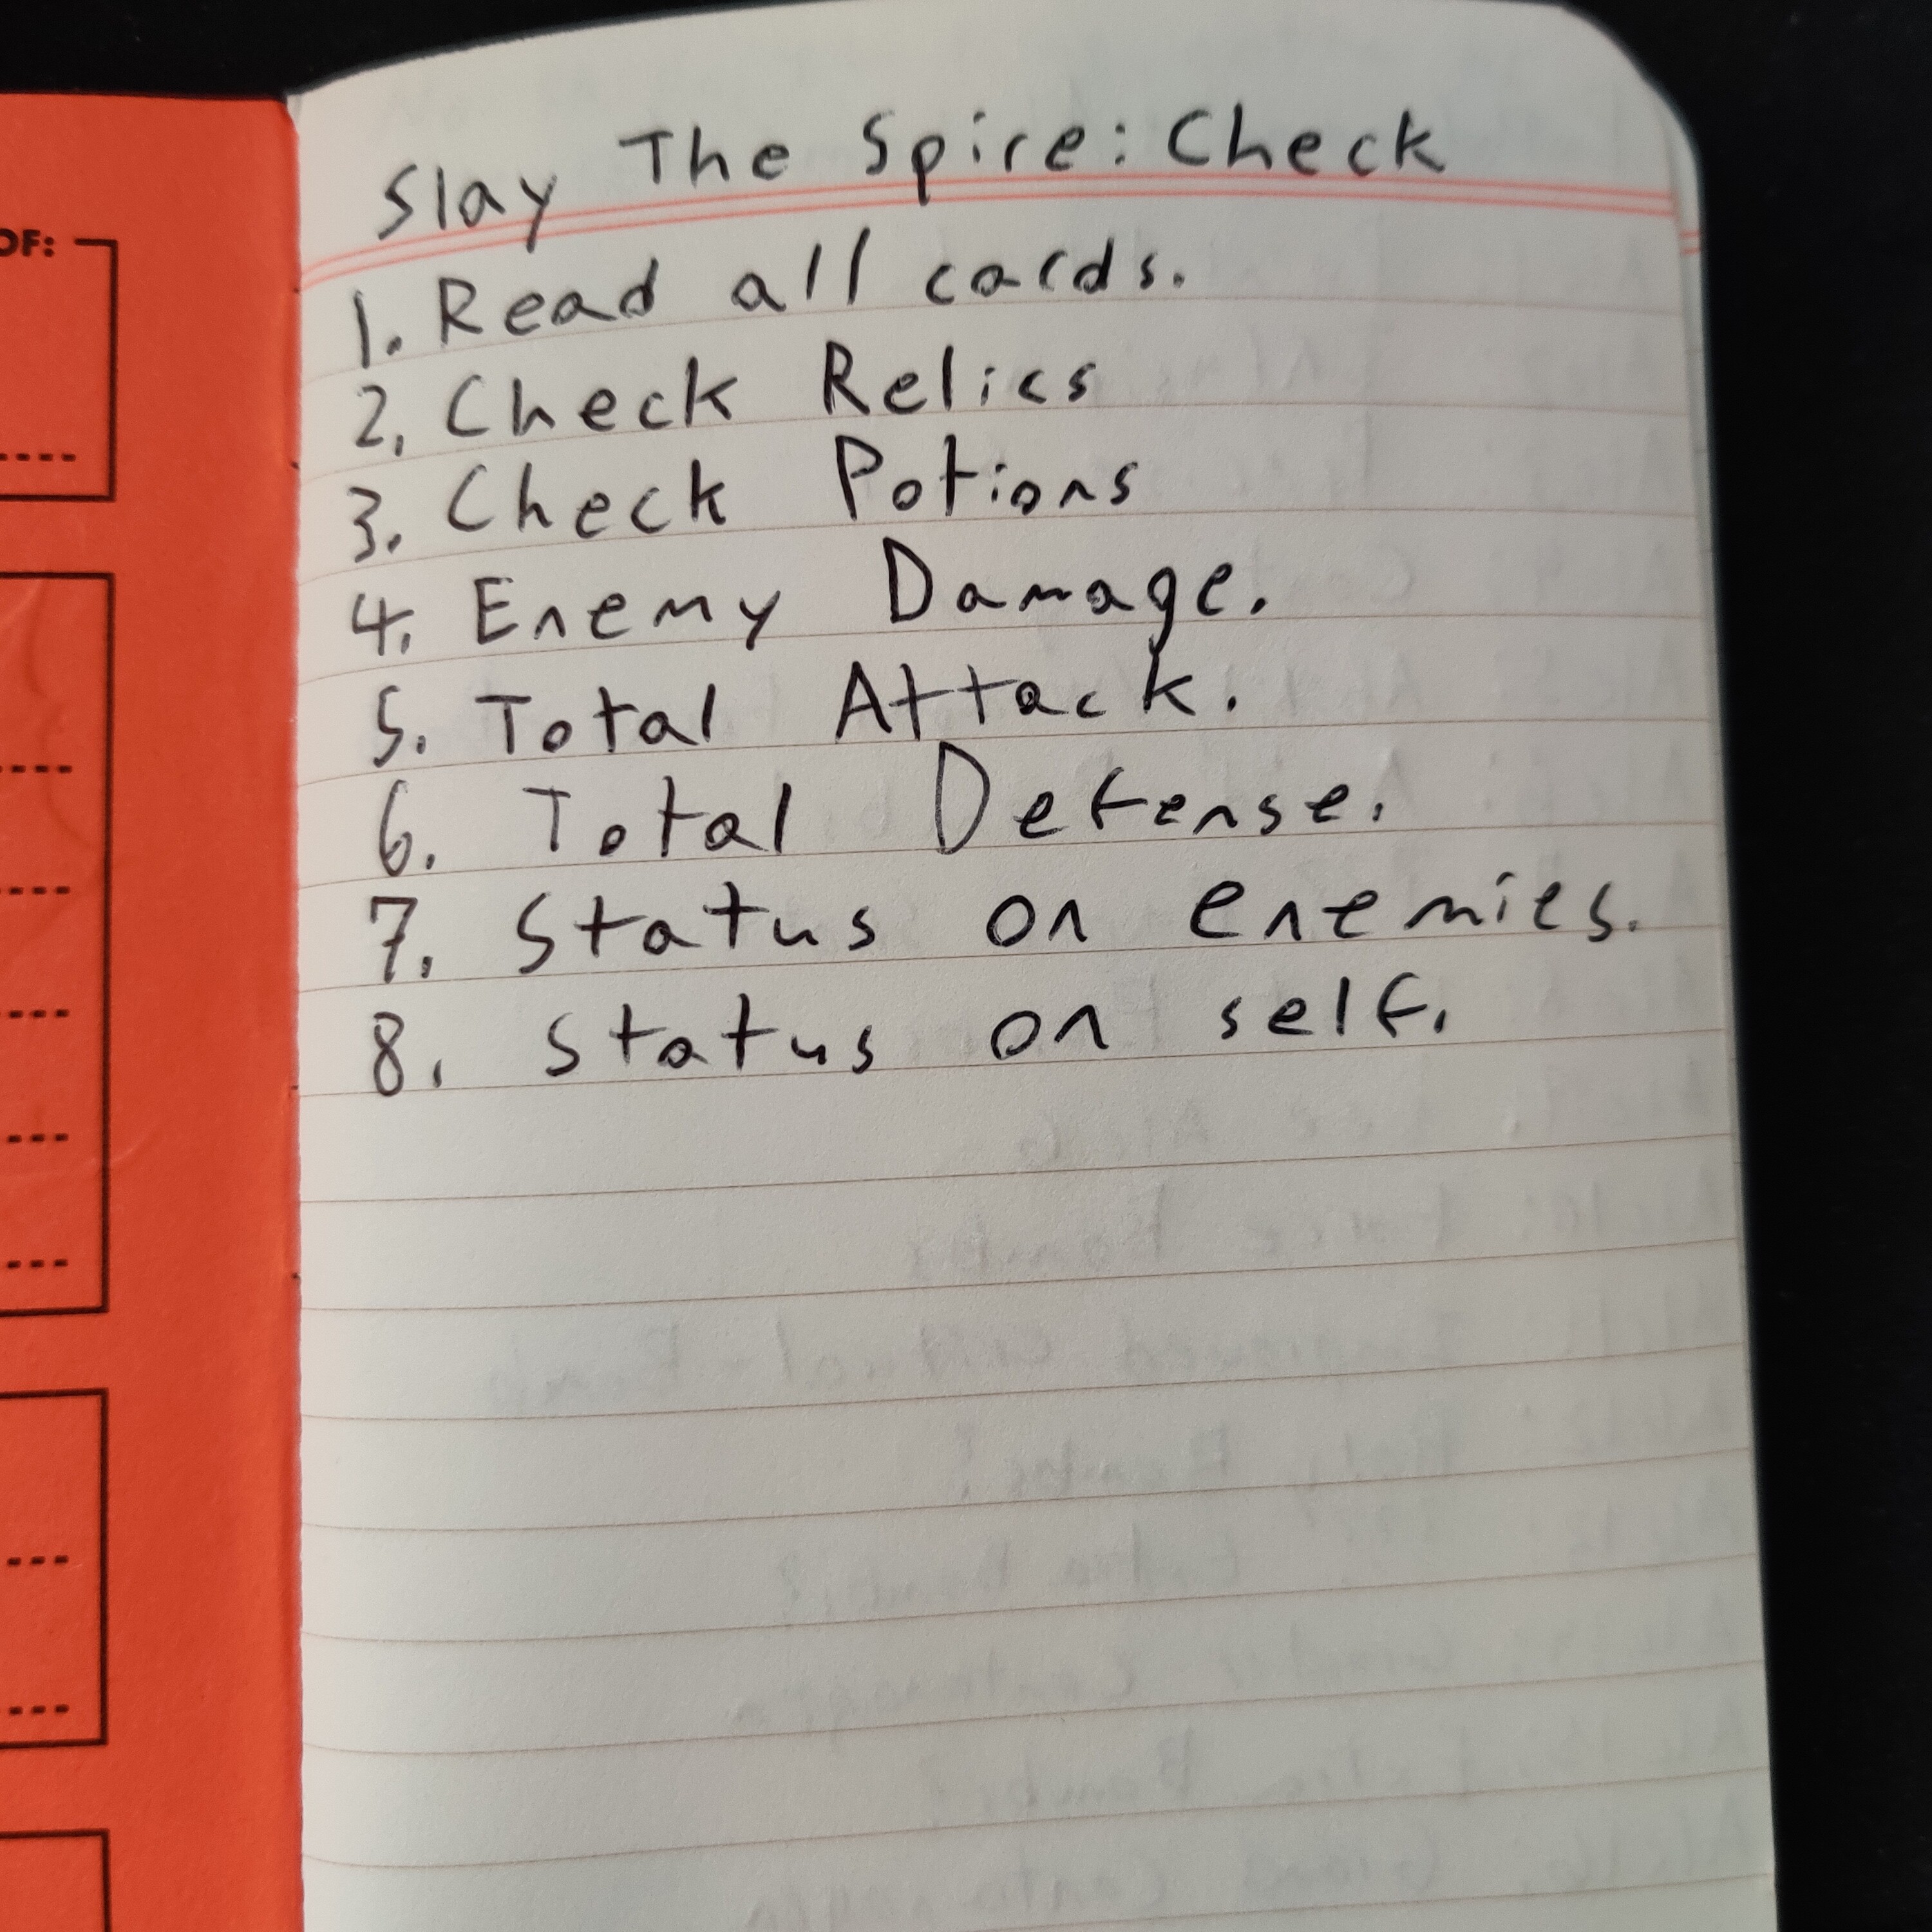 OF:
Slay The Spire: Check
1. Read all cards.
2. Check Relics
3. Check Potions
4. Enemy Damage.
5. Total Attack.
6. Total Defense.
7. Status on enemies.
8. Status on self.